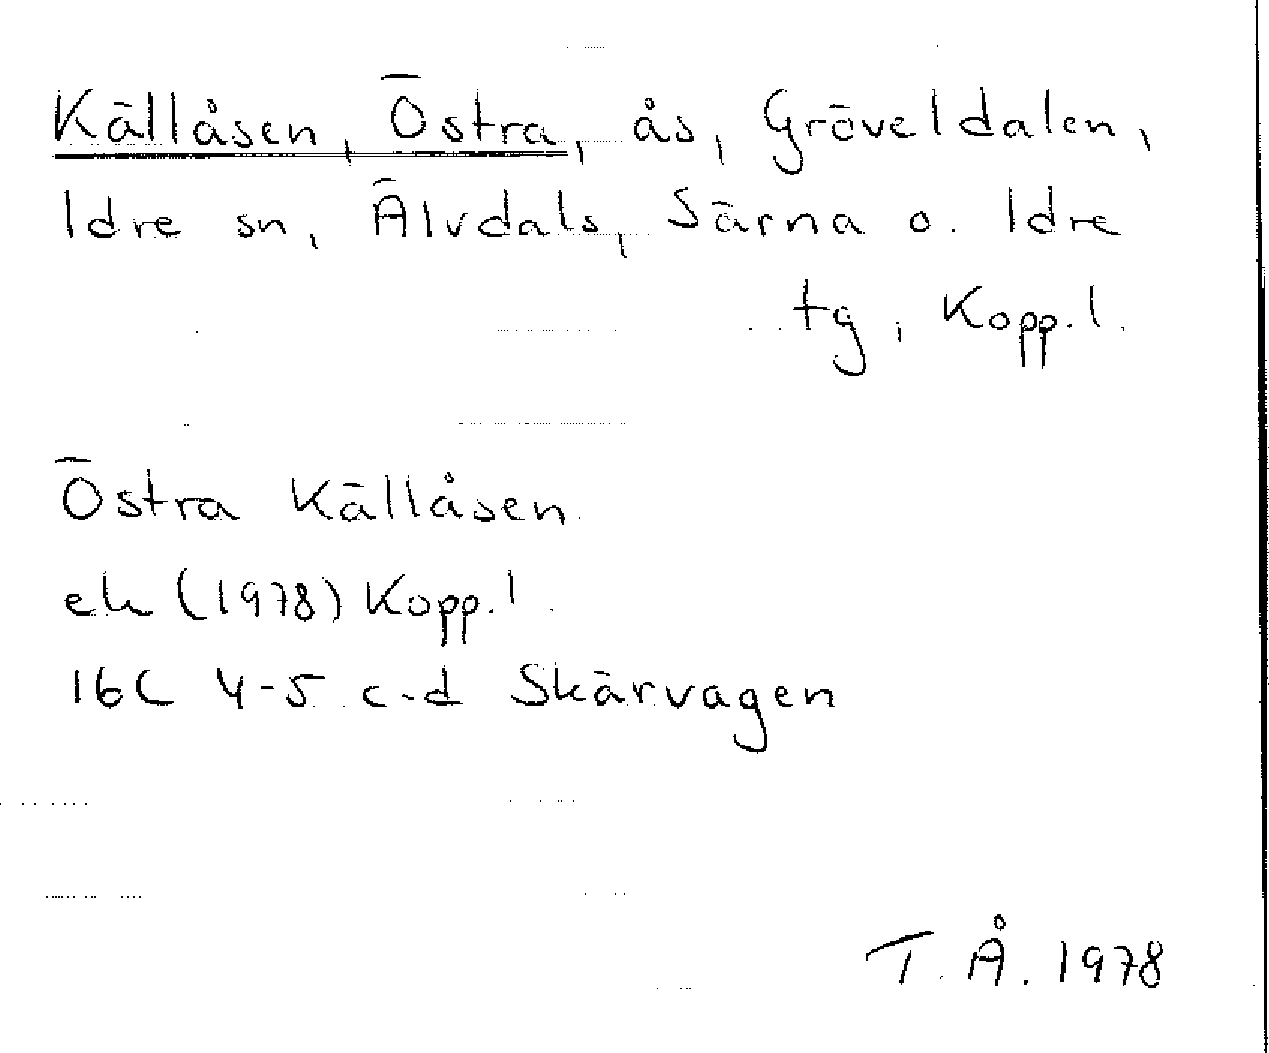 Källåsen, Östra, ås, Gröveldalen,
Idre sn, Älvdals, Särna o. Idre
tg, Kopp. l.
Östra Källåsen
ek (1978) Kopp. l
16C 4-5 c-d Skärvagen
T. Å. 1978